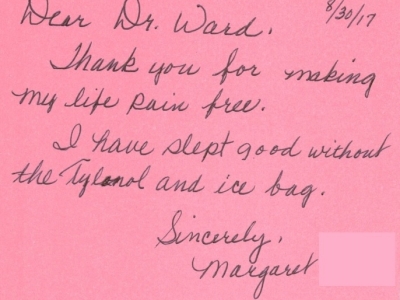 8/30/17
Dear Dr. Ward,
Thank you for making
my life pain free.
I have slept good without
the Tylenol and ice bag.
Sincerely,
Margaret